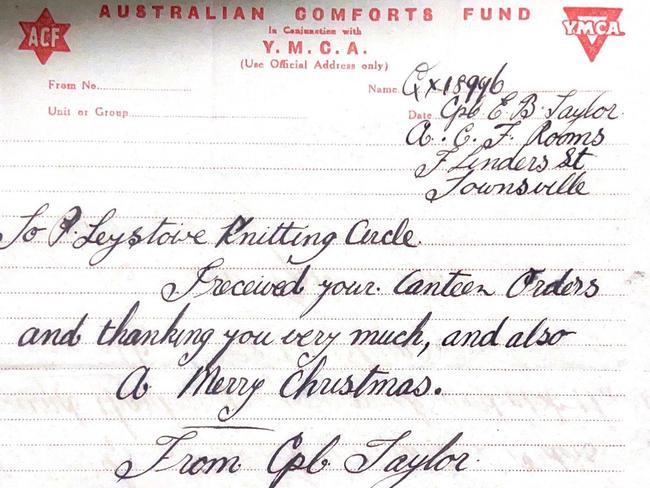 AUSTRALIAN COMFORTS FUND
In Conjunction with
Y.M.C.A.
(Use Official Address only)
ACF
YMCA
From No.
Name Qx18946
Unit or Group
Date Cpl E B Taylor
A. C. F. Rooms
Flinders St
Townsville
To P. Leystowe Knitting Circle.
I received your Canteen Orders
and thanking you very much, and also
A Merry Christmas.
From Cpl Taylor